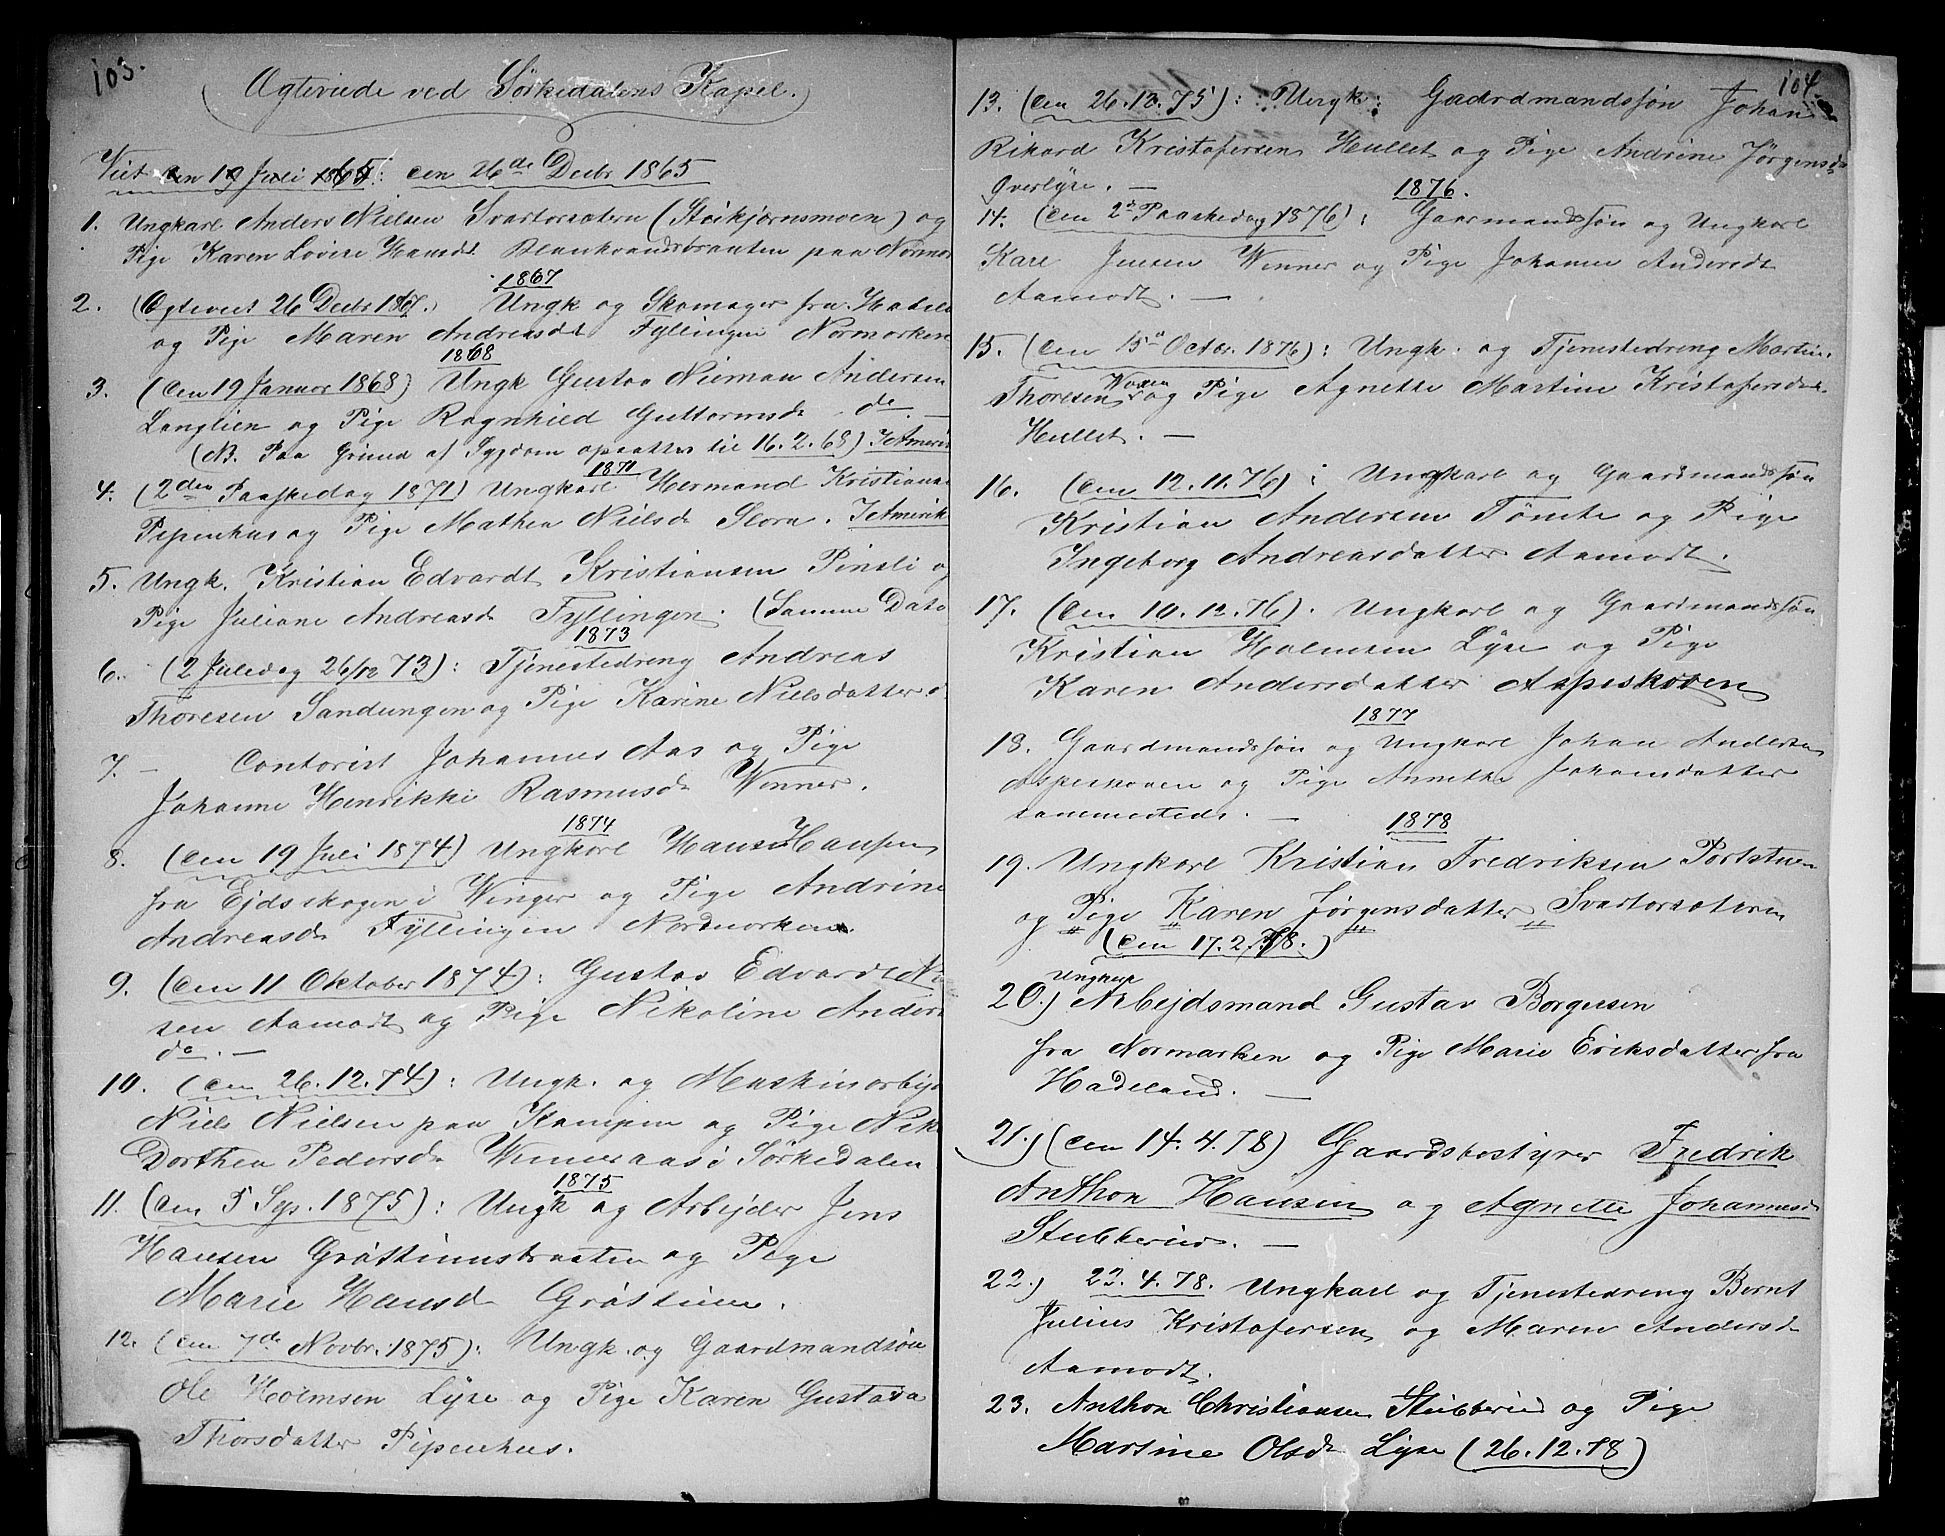 103.
Ægteviede ved Sørkedalens Kapel.
Viet den 19 Juli 1865: den 26de Decbr 1865
1. Ungkarl Anders Nielsen Svartorsætern (Støikjernsmoen) og
Pige Karen Lovise Hansd. Blankvandsbraaten paa Normar
1867
2. (Ægteviet 26 Decbr 1867.) Ungk og Skomager fra Hadela
og Pige Maren Andreasdt Fyllingen Normarken
1868
3. (den 19 Januar 1868) Ungk Gustav Nieman Andersen
Langlien og Pige Ragnhild Guttormsd. do. —
(NB. Paa Grund af Sygdom opsattes til 16.2.68) I Amerik
1871
4. (2den Paaskedag 1871) Ungkarl Hermand Kristians
Pipenhus og Pige Mathea Nielsd Slora. I Amerik
5. Ungk. Kristian Edvardt Kristiansen Pinsli og
Pige Juliane Andreasd Fyllingen. (Samme Dato
1873
6. (2 Juledag 26/12 73): Tjenestedreng Andreas
Thoresen Sandungen og Pige Karine Nielsdatter i
7. — Contorist Johannes Aas og Pige
Johanne Henrikke Rasmusd. Winner.
1874
8. (den 19 Juli 1874) Ungkarl Hans Hansen
fra Ejdsskogen i Winger og Pige Andrine
Andreasd. Fyllingen Nordmarken.
9. (den 11 Oktober 1874): Gustav Edvardt Ni
sen Aamodt og Pige Nikoline Anders
do. —
10. (den 26.12.74): Ungk. og Maskinarbejd
Niels Nielsen paa Kampen og Pige Nik
Dorthea Pedersd. Winneraas i Sørkedalen
1875
11. (den 5 Sep. 1875): Ungk og Arbejder Jens
Hansen Grøttumsbraaten og Pige
Marie Hansd. Grøttum.
12. (den 7de Novbr. 1875): Ungk. og Gaardmandsøn
Ole Holmsen Lyse og Pige Karen Gustava
Thorsdatter Pipenhus.
104.
13. (den 26.12.75): Ungk: Gaardmandssøn Johan
Rikard Kristofersen Hullet og Pige Andrine Jørgensd
Øverlyse. —
1876.
14. (den 2d Paaskedag 1876): Gaarmandssøn og Ungkarl
Karl Jensen Winner og Pige Johanne Andersdt
Aamodt. —
15. (den 15de Octbr. 1876): Ungk. og Tjenestedreng Martin
Thoresen Woxen og Pige Agnethe Martine Kristofersdt
Hullet. —
16. (den 12.11.76): Ungkarl og Gaardmandssøn
Kristian Andersen Tømte og Pige
Ingeborg Andreasdatter Aamodt.
17. (den 10.12.76). Ungkarl og Gaardmandssøn
Kristian Holmsen Lyse og Pige
Karen Andersdatter Aspeskoven
1877
18. Gaardmandssøn og Ungkarl Johan Andersen
Aspeskoven og Pige Annethe Johansdatter
sammesteds. —
1878
19. Ungkarl Kristian Fredriksen Portstuen
og Pige Karen Jørgensdatter Svartorsætern
(den 17.2.78.)
Ungkarl
20.) Arbejdsmand Gustav Borgersen
fra Normarken og Pige Marie Eriksdatter fra
Hadeland. —
21.) (den 14.4.78) Gaardsbestyrer Fredrik
Anthon Hansen og Agnette Johannesd
Stubberud. —
22.) 22.4.78. Ungkarl og Tjenestedreng Bernt
Julius Kristofersen og Maren Andersd
Aamodt.
23. Anthon Christiansen Stubberud og Pige
Martine Olsd. Lyse (26.12.78)